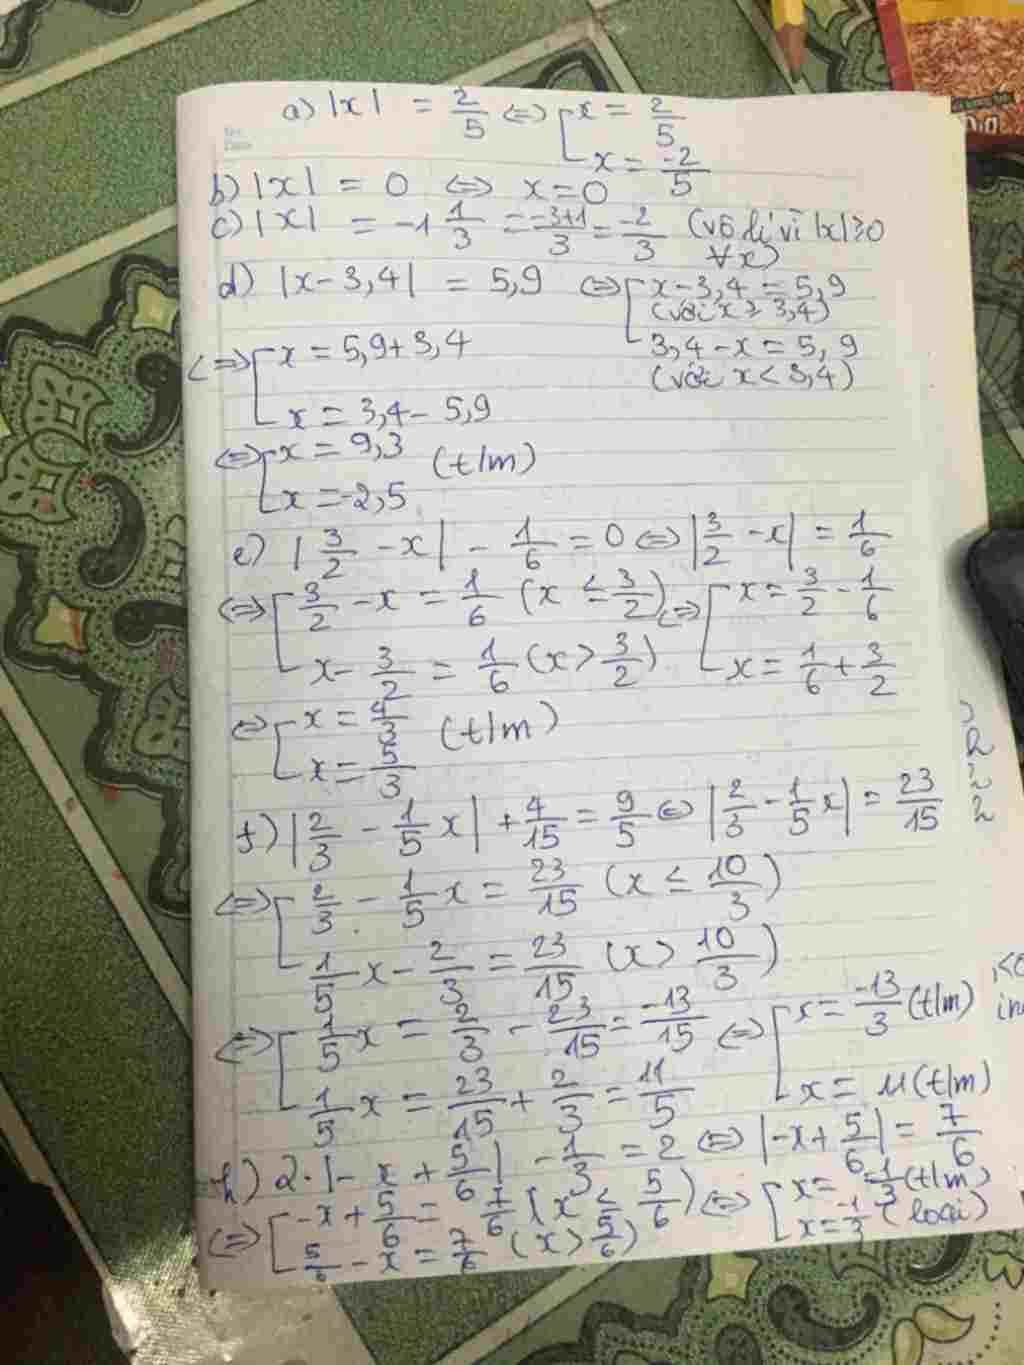 a) |x| = 2/5 ⇔ [x = 2/5
x = -2/5
b) |x| = 0 ⇔ x = 0
c) |x| = -1 1/3 = -3+1/3 = -2/3 (vô lí vì |x| ≥ 0
∀x)
d) |x - 3,4| = 5,9 ⇔ [x - 3,4 = 5,9
(với x ≥ 3,4)
3,4 - x = 5,9
(với x < 3,4)
⇔ [x = 5,9 + 3,4
x = 3,4 - 5,9
⇔ [x = 9,3
x = -2,5 (t/m)
e) |3/2 - x| - 1/6 = 0 ⇔ |3/2 - x| = 1/6
⇔ [3/2 - x = 1/6 (x ≤ 3/2) ⇔ [x = 3/2 - 1/6
x - 3/2 = 1/6 (x > 3/2) x = 1/6 + 3/2
⇔ [x = 4/3
x = 5/3 (t/m)
f) |2/3 - 1/5 x| + 4/15 = 9/5 ⇔ |2/3 - 1/5 x| = 23/15
⇔ [2/3 - 1/5 x = 23/15 (x ≤ 10/3)
1/5 x - 2/3 = 23/15 (x > 10/3)
⇔ [1/5 x = 2/3 - 23/15 = -13/15 ⇔ [x = -13/3 (t/m)
1/5 x = 23/15 + 2/3 = 11/5 x = 11 (t/m)
h) 2.|-x + 5/6| - 1/3 = 2 ⇔ |-x + 5/6| = 7/6
⇔ [-x + 5/6 = 7/6 (x ≤ 5/6) ⇔ [x = -1/3 (t/m)
5/6 - x = 7/6 (x > 5/6) x = -1/3 (loại)